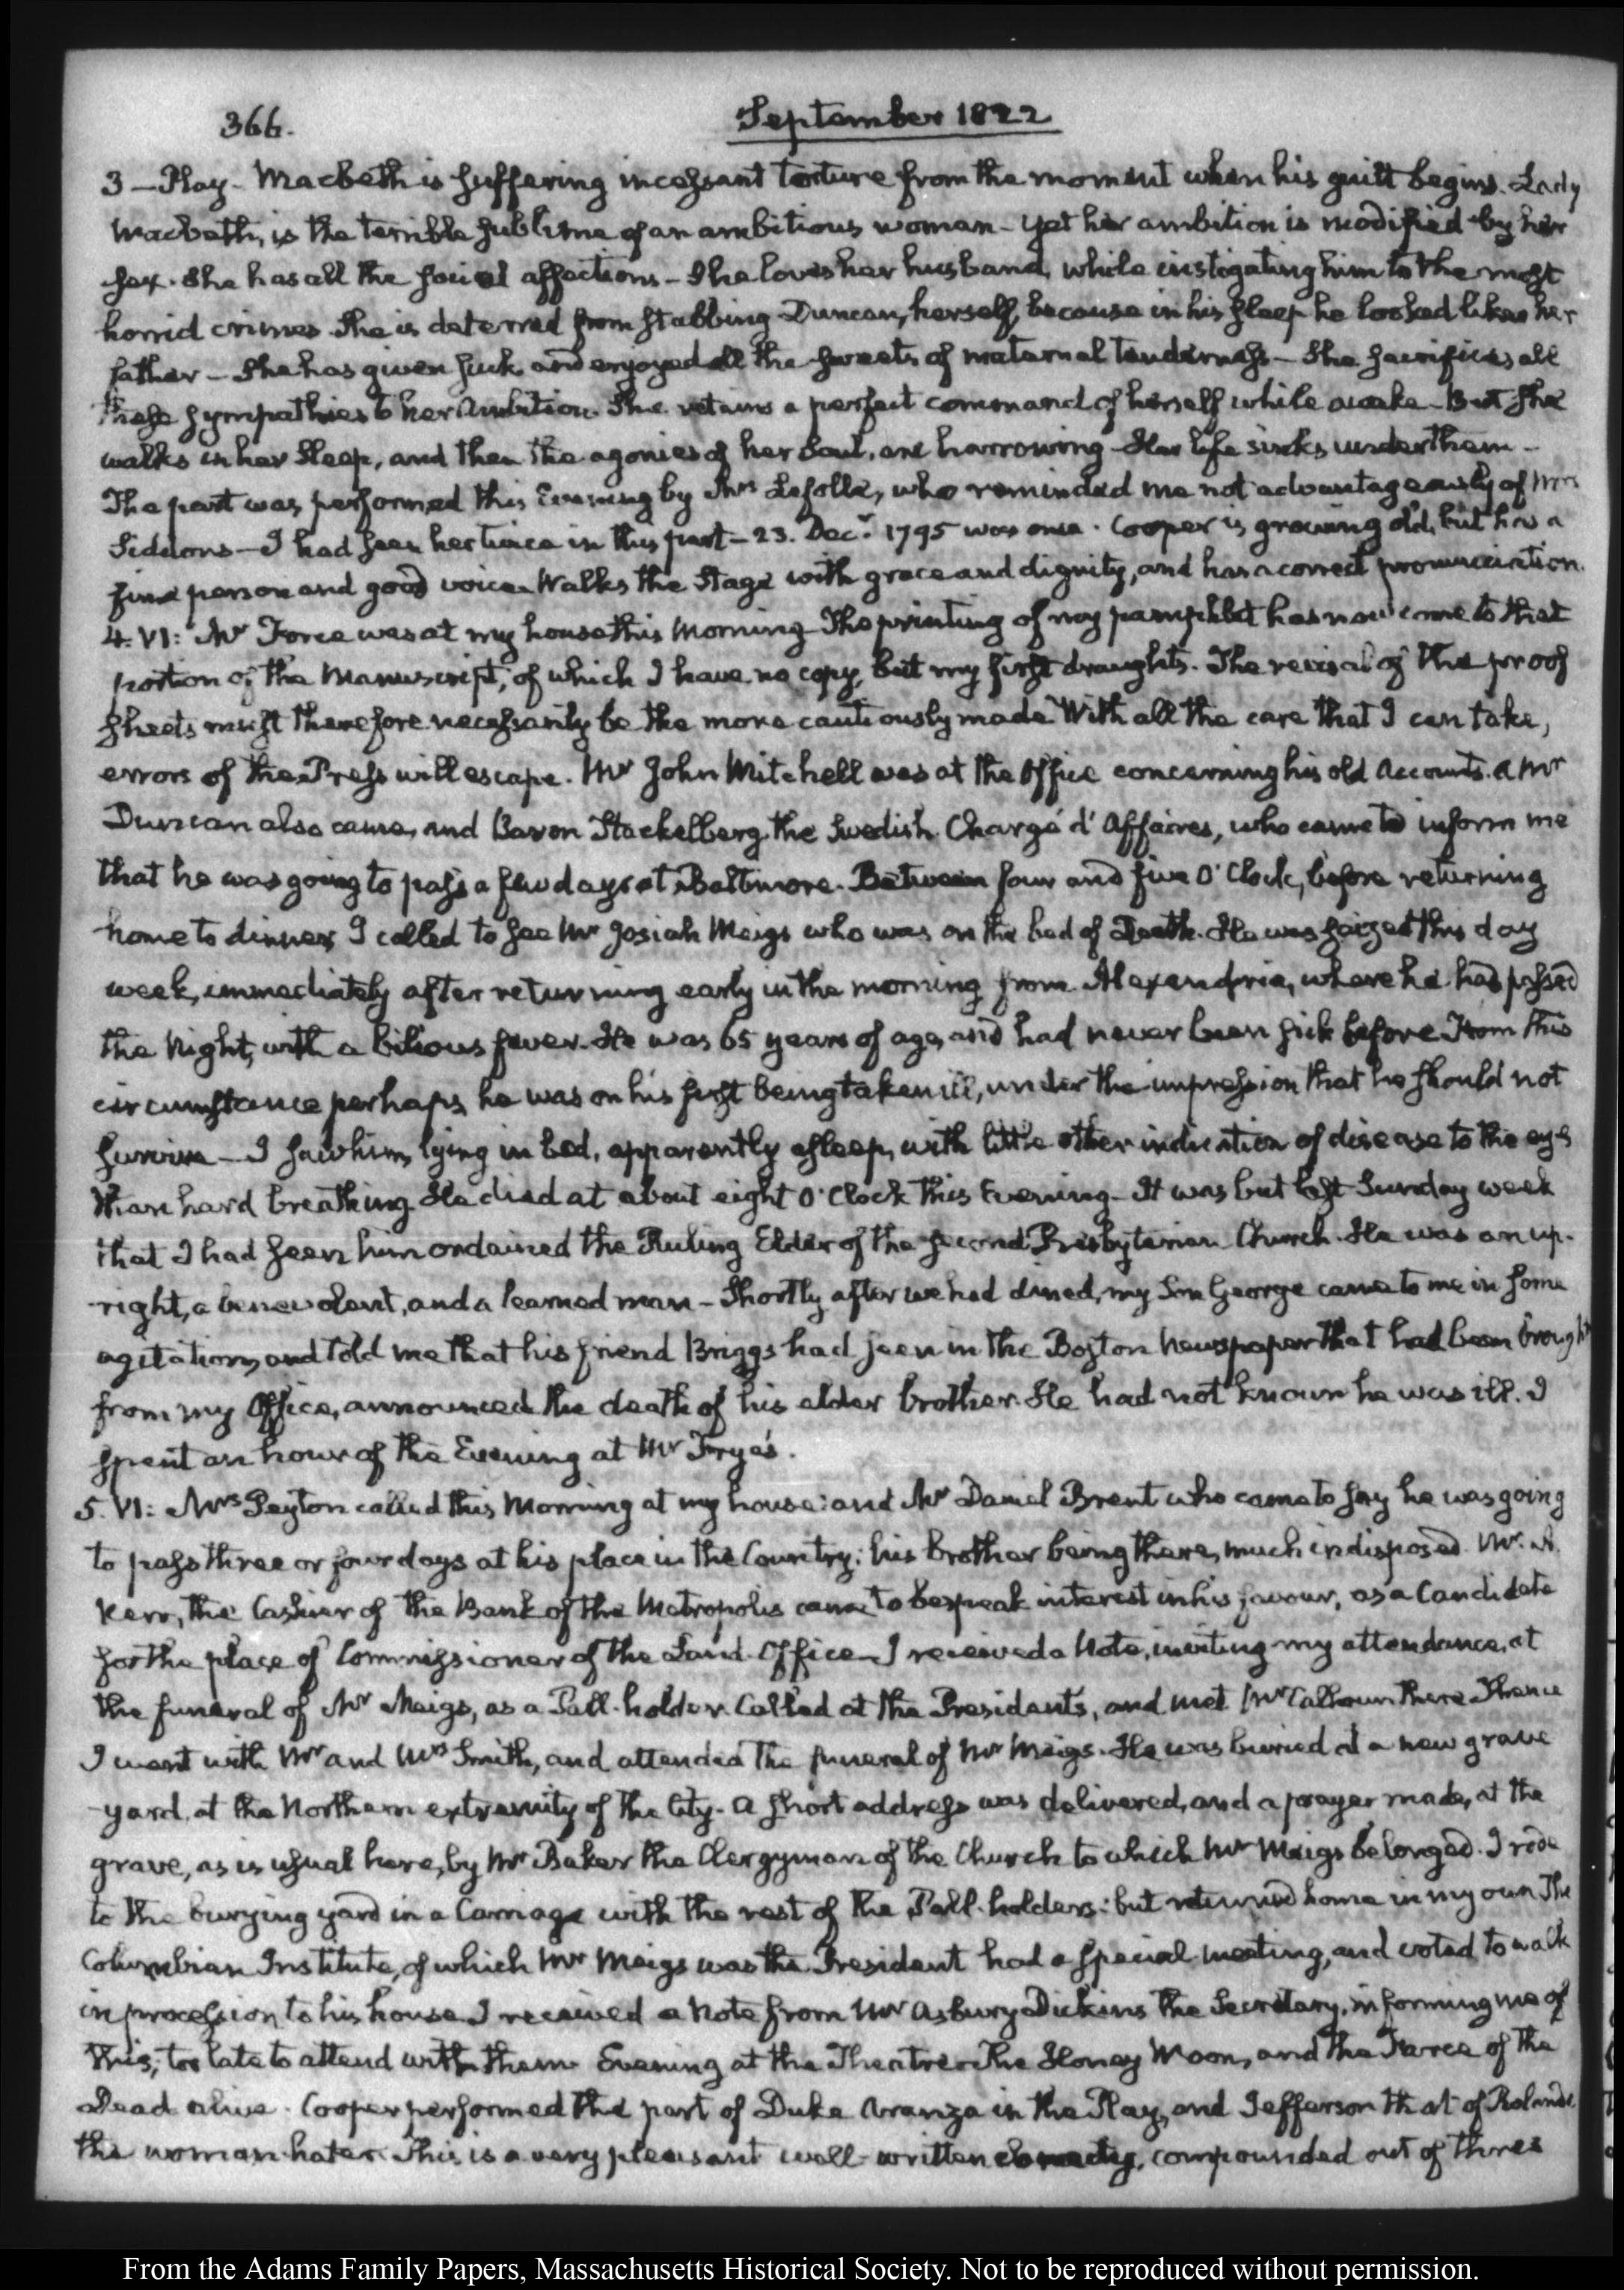 366.
September 1822
3 — Play - Macbeth is suffering incessant torture from the moment when his guilt begins. Lady
Macbeth, is the terrible sublime of an ambitious woman - yet her ambition is modified by her
sex. She has all the social affections - She loves her husband, while instigating him to the most
horrid crimes. She is deterred from stabbing Duncan, herself, because in his sleep he looked like her
father — She has given suck, and enjoyed all the sweets of maternal tenderness — She sacrifices all
these sympathies to her ambition. She retains a perfect command of herself while awake - But she
walks in her sleep, and then the agonies of her Soul, are harrowing - Her life sinks under them —
The part was performed this Evening by Mrs who reminded me not advantageously of Mrs
Siddons — I had seen her twice in this part - 23. Decr. 1795 was once. Cooper is growing old, but has a
fine person and good voice. Walks the Stage with grace and dignity, and has a correct pronunciation.
4. VI: Mr Force was at my house this Morning - The printing of my pamphlet has now come to that
portion of the Manuscript, of which I have no copy, but my first draughts. The revisal of the proof
sheets must therefore necessarily be the more cautiously made. With all the care that I can take,
errors of the Press will escape. Mr John Mitchell was at the Office concerning his old Accounts. A Mr
Duncan also came, and Baron Stackelberg the Swedish Chargé d'Affaires, who came to inform me
that he was going to pass a few days at Baltimore. Between four and five O'Clock, before returning
home to dinner, I called to see Mr Josiah Meigs who was on the bed of Death. He was seized this day
week, immediately after returning early in the morning from Alexandria, where he had passed
the Night, with a bilious fever. He was 65 years of age, and had never been sick before. From this
circumstance perhaps, he was on his first being taken ill, under the impression that he should not
survive — I saw him, lying in bed, apparently asleep, with little other indication of disease to the eye
than hard breathing. He died at about eight O'Clock this Evening - It was but last Sunday week
that I had seen him ordained the Ruling Elder of the second Presbyterian Church. He was an up-
right, a benevolent, and a learned man - Shortly after we had dined, my Son George came to me in some
agitation, and told me that his friend Briggs had seen in the Boston Newspaper that had been brought
from my Office, announced the death of his elder brother. He had not known he was ill. I
spent an hour of the Evening at Mr Frye's.
5. VI: Mrs Peyton called this Morning at my house: and Mr Daniel Brent who came to say he was going
to pass three or four days at his place in the Country; his brother being there, much indisposed. Mr. A.
Kerr, the Cashier of the Bank of the Metropolis came to bespeak interest in his favour, as a Candidate
for the place of Commissioner of the Land-Office. I received a Note, inviting my attendance, at
the funeral of Mr Meigs, as a Pall-holder. Called at the Presidents, and met Mr Calhoun there. Thence
I went with Mr and Mrs Smith, and attended the funeral of Mr Meigs. He was buried at a new grave
yard, at the Northern extremity of the City. A short address was delivered, and a prayer made, at the
grave, as is usual here, by Mr Baker the Clergyman of the Church to which Mr Meigs belonged. I rode
to the burying yard in a Carriage with the rest of the Pall-holders: but returned home in my own. The
Columbian Institute, of which Mr Meigs was the President had a special meeting, and voted to walk
in procession to his house. I received a Note from Mr Asbury Dickins the Secretary, informing me of
this; too late to attend with them. Evening at the Theatre. The Honey Moon, and the Farce of the
Dead alive. Cooper performed the part of Duke Aranza in the Play, and Jefferson that of Rolando
the woman-hater. This is a very pleasant well-written comedy, compounded out of three
From the Adams Family Papers, Massachusetts Historical Society. Not to be reproduced without permission.